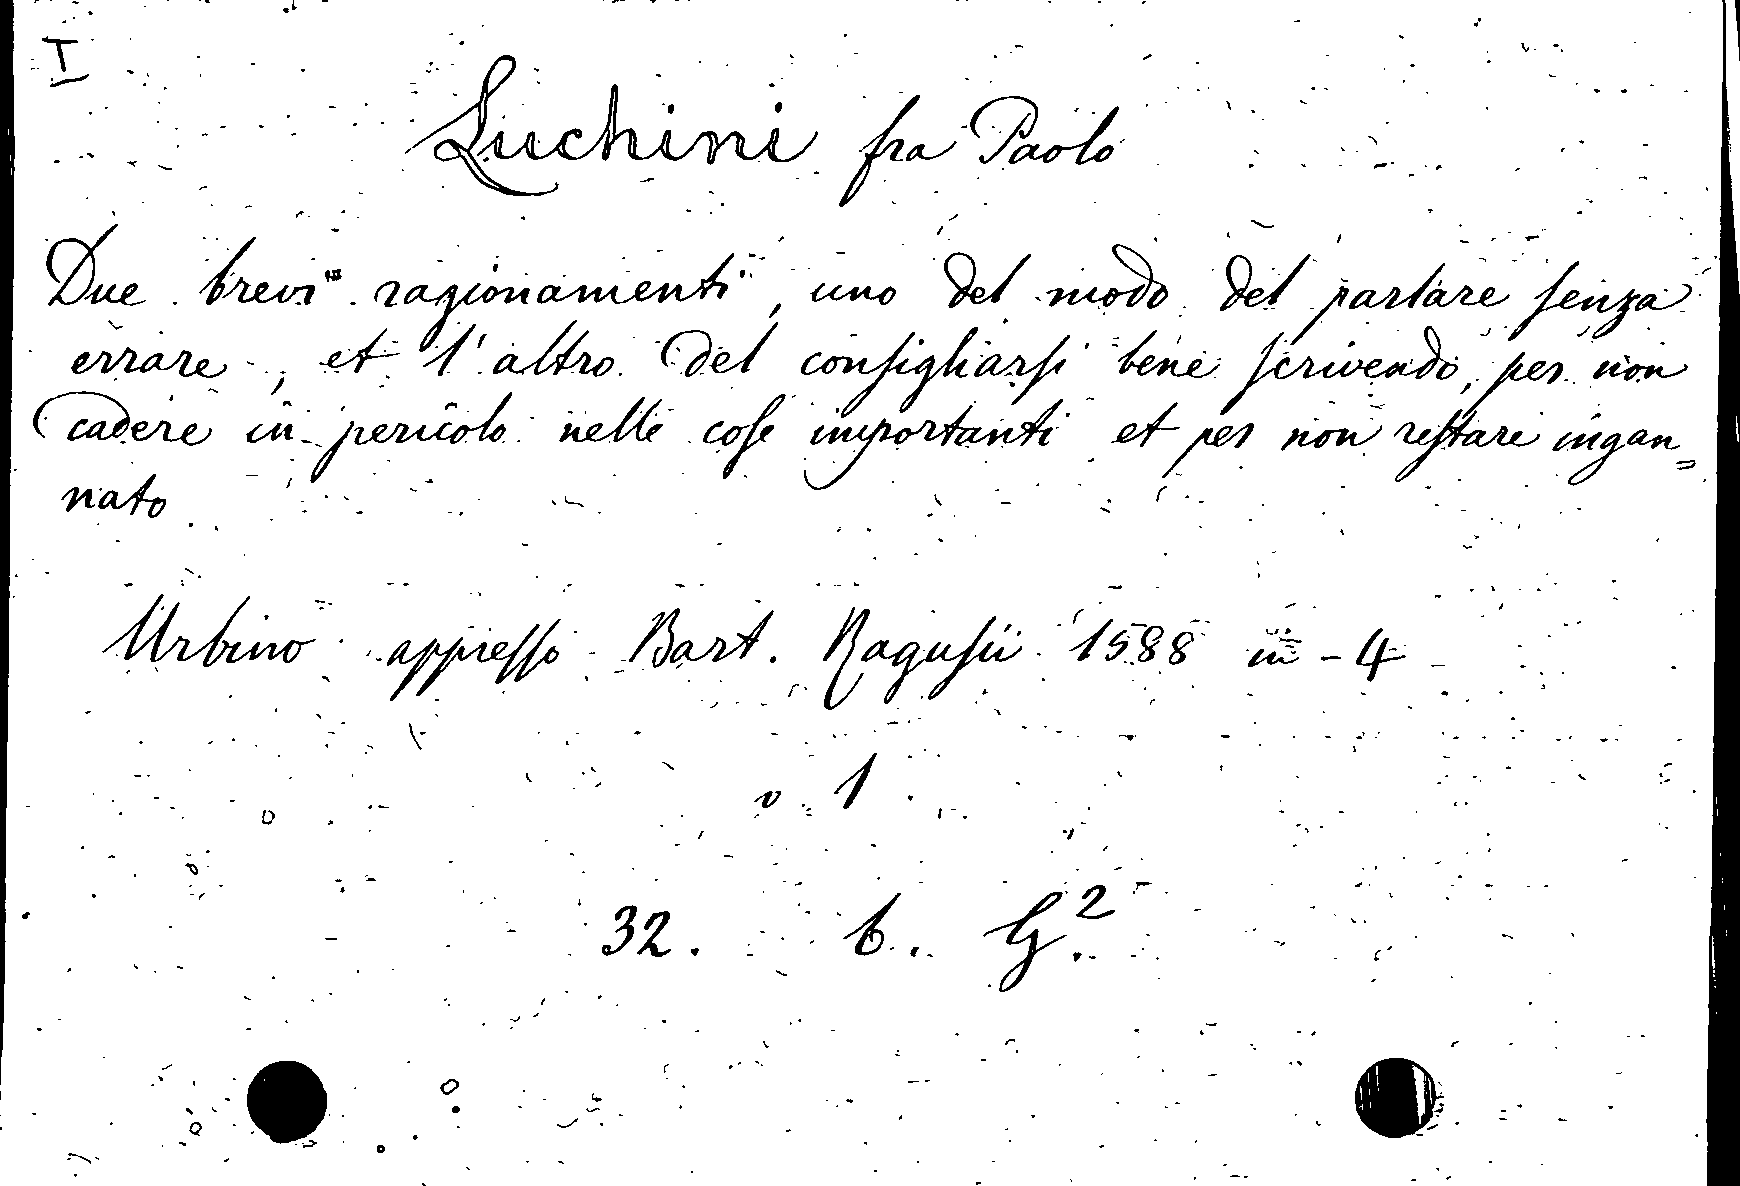 I
Luchini fra Paolo
Due brevi ragionamenti, uno del modo del parlare senza
errare, et l'altro del consigliarsi bene scrivendo, per non
cadere in pericolo nelle cose importanti et per non restare ingan=
nato
Urbino appresso Bart. Ragusii 1588 in-4
v. 1
32. 6. G.²